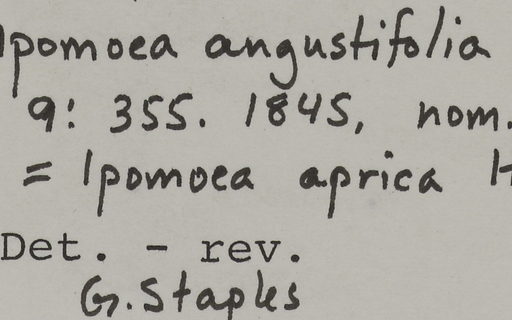 Ipomoea angustifolia
9: 355. 1845, nom.
= Ipomoea aprica H
Det. - rev.
G. Staples